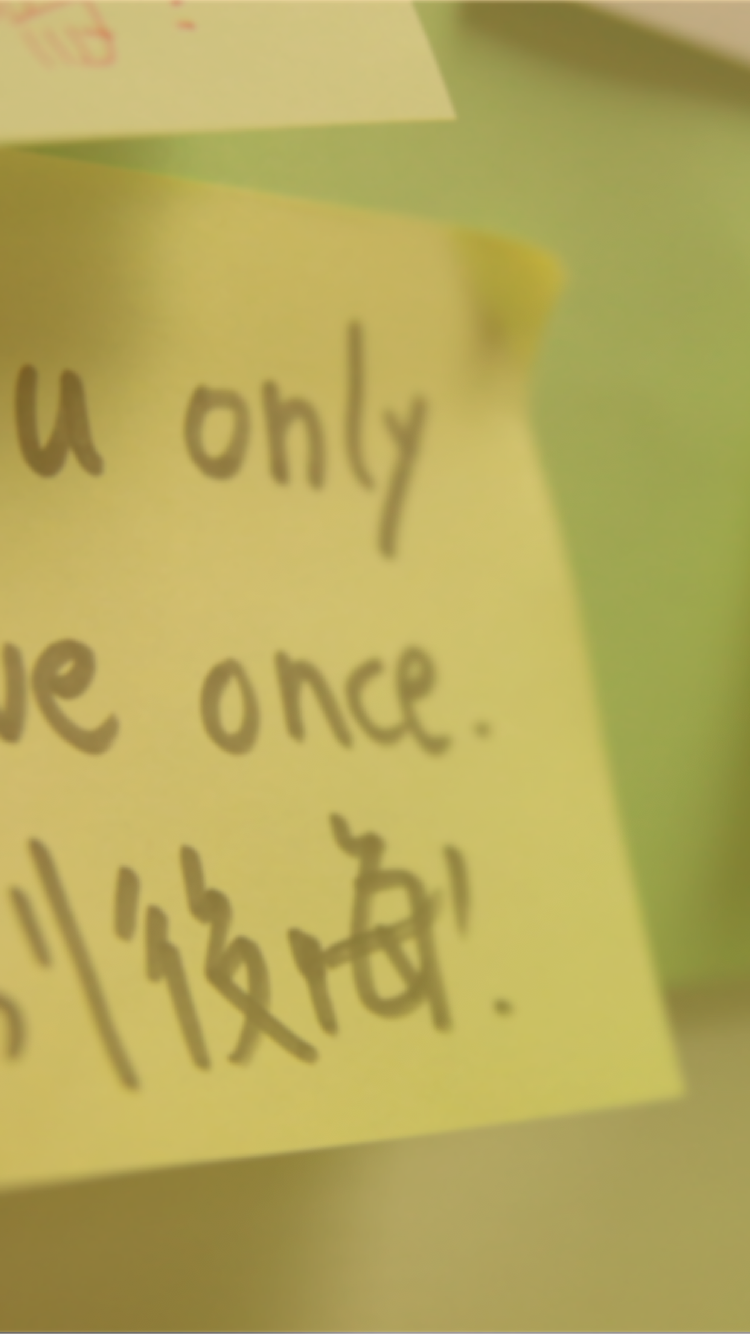 u only
ve once.
別後悔!.